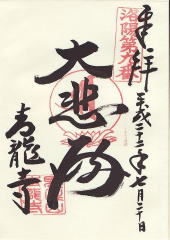 奉拝
洛陽第九番
平成二十二年七月二十日
大悲殿
青龍寺